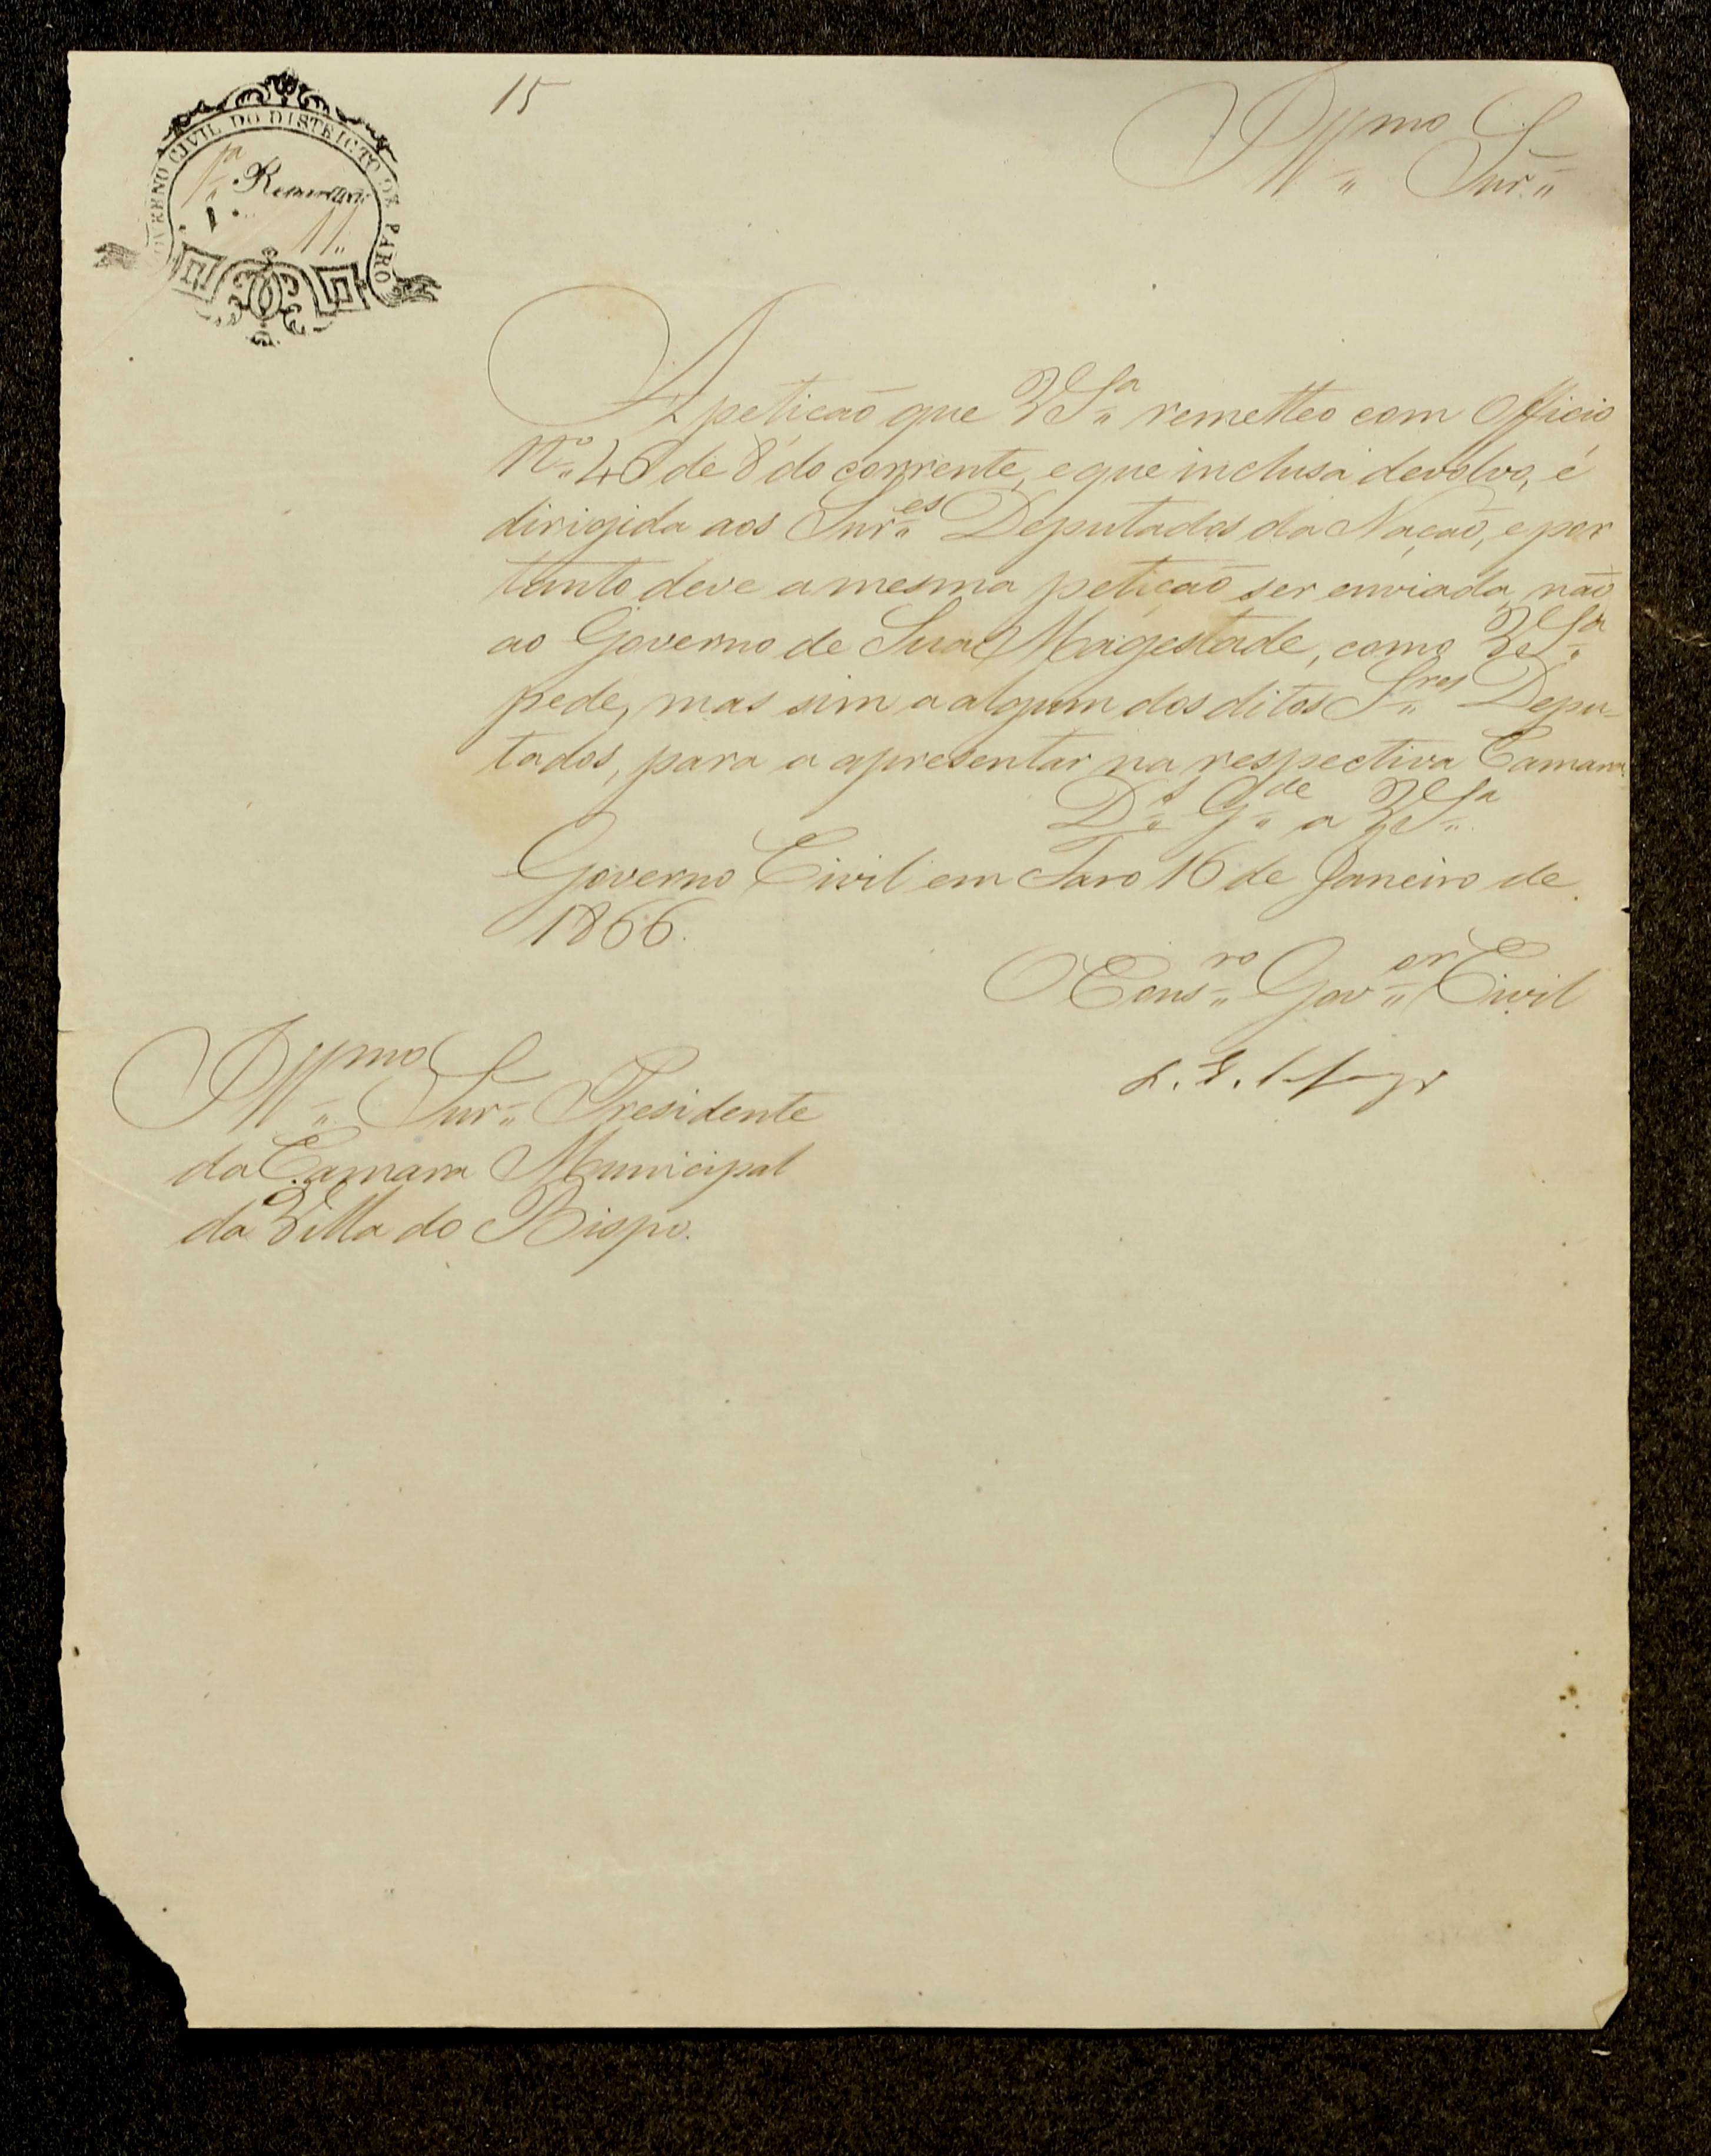 15
GOVERNO CIVIL DO DISTRICTO DE FARO
1ª Repartição
Illmo Snr.
A petição que VSª remetteo com Officio
Nº 46 de 8 do corrente, e que inclusa devolvo, é
dirigida aos Snres Deputados da Nação, e por
tanto deve a mesma petição ser enviada, não
ao Governo de Sua Magestade, como VSª
pede, mas sim a algum dos ditos Sres Depu-
tados, para a apresentar na respectiva Camara.
Ds Gde a VSª
Governo Civil em Faro 16 de Janeiro de
1866.
O Consro Govor Civil
Illmo Snr. Presidente
da Camara Municipal
da Villa do Bispo.